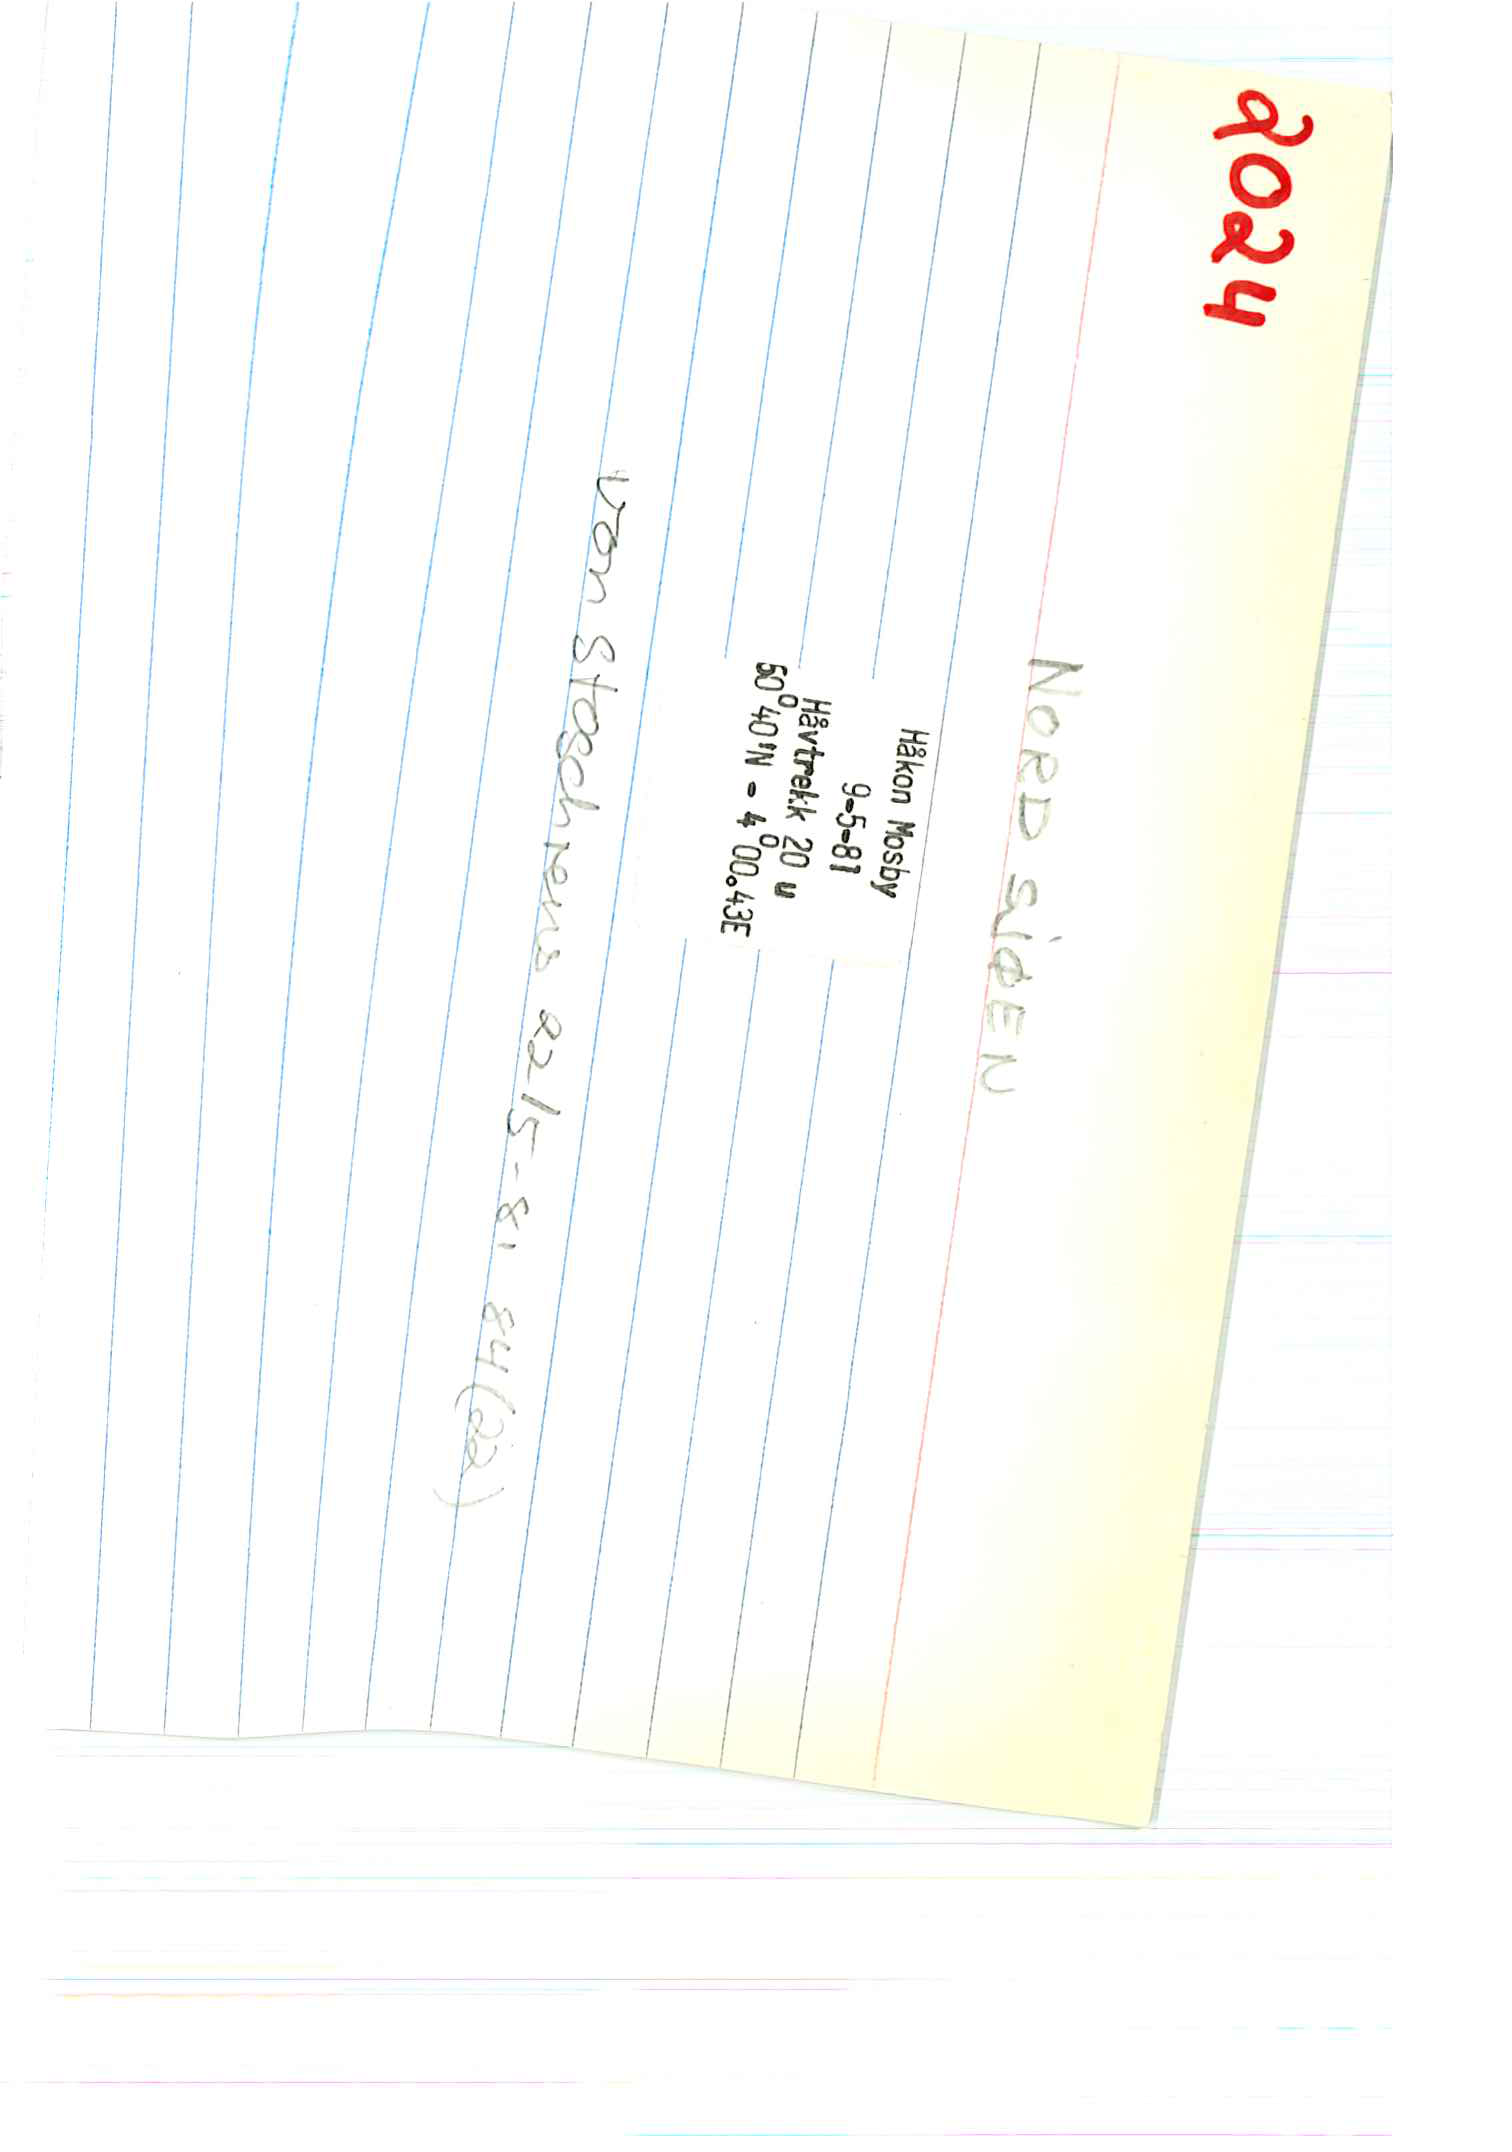 2024
NORD SJØEN
Håkon Mosby
9-5-81
Håvtrekk 20 u
60° 40'N - 4° 00.43E
von Stosch rens 22/5-81 84(22)